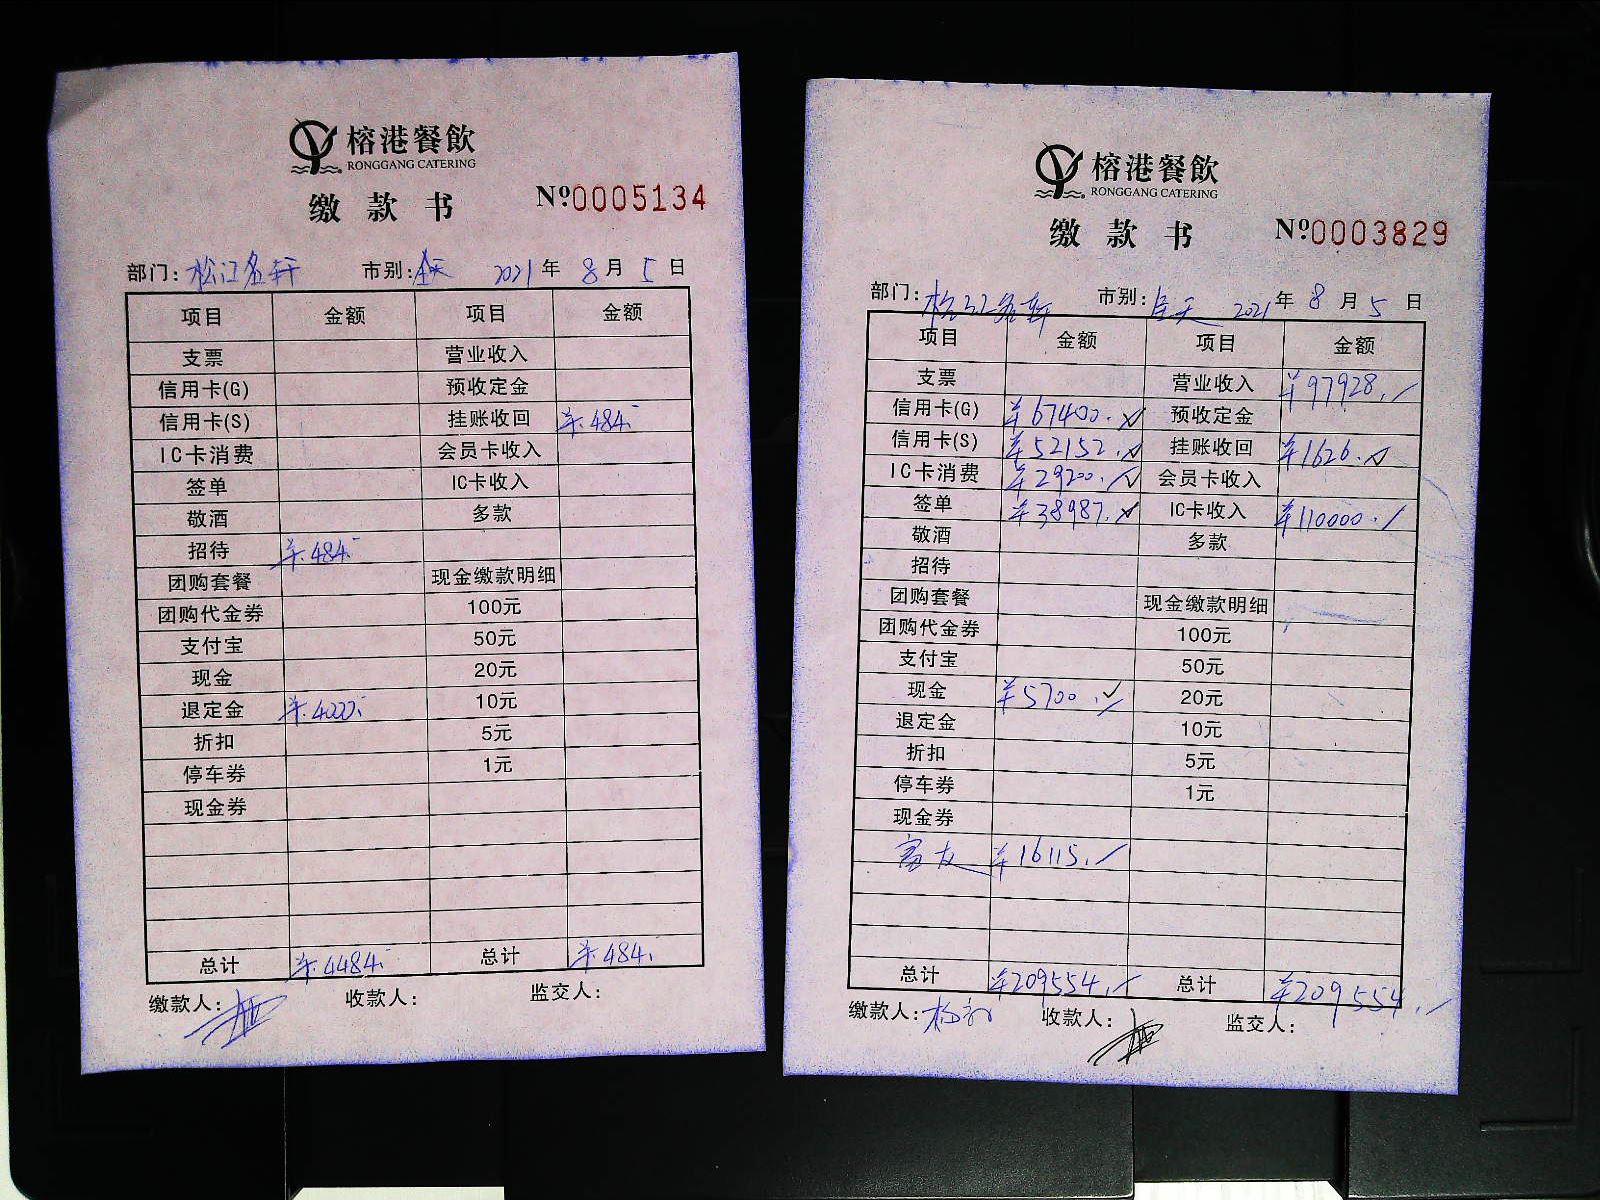 榕港餐飲
RONGGANG CATERING
缴款书 №0005134
部门: 松江名轩 市别: 全天 2021年 8月 5日
项目 金额 项目 金额
支票 营业收入
信用卡(G) 预收定金
信用卡(S) 挂账收回 ¥484.
IC卡消费 会员卡收入
签单 IC卡收入
敬酒 多款
招待 ¥484.
团购套餐 现金缴款明细
团购代金券 100元
支付宝 50元
现金 20元
退定金 ¥4000. 10元
折扣 5元
停车券 1元
现金券
总计 ¥4484. 总计 ¥484.
缴款人: 收款人: 监交人:
榕港餐飲
RONGGANG CATERING
缴款书 №0003829
部门: 松江名轩 市别: 全天 2021年 8月 5日
项目 金额 项目 金额
支票 营业收入 ¥97928.
信用卡(G) ¥67400. 预收定金
信用卡(S) ¥52152. 挂账收回 ¥1626.
IC卡消费 ¥29200. 会员卡收入
签单 ¥38987. IC卡收入 ¥110000.
敬酒 多款
招待
团购套餐 现金缴款明细
团购代金券 100元
支付宝 50元
现金 ¥5700. 20元
退定金 10元
折扣 5元
停车券 1元
现金券
富友 ¥16115.
总计 ¥209554. 总计 ¥209554.
缴款人: 收款人: 监交人: